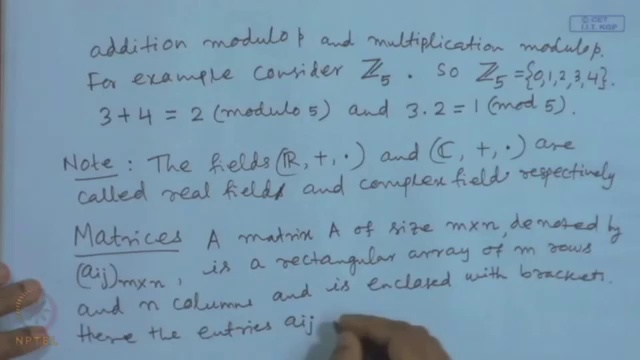 © CET
I.I.T. KGP
addition modulo p and multiplication modulo p.
For example consider ℤ₅. So ℤ₅ = {0,1,2,3,4}.
3+4 = 2 (modulo 5) and 3.2 = 1 (mod 5).
Note: The fields (ℝ, +, ·) and (ℂ, +, ·) are
called real field and complex field respectively
Matrices A matrix A of size m×n, denoted by
(aij)m×n, is a rectangular array of m rows
and n columns and is enclosed with brackets.
Here the entries aij
NPTEL